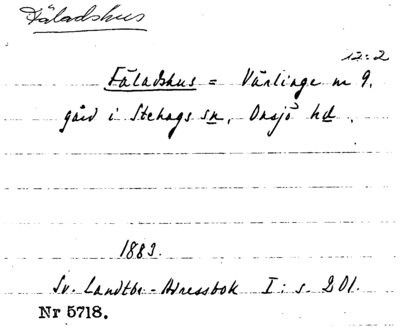 Fäladshus
12:2
Fäladshus = Värlinge nr 9.
gård i Stehags sn, Onsjö hd.
1883.
Sv. Landtbr.-Adressbok I: s. 201.
Nr 5718.